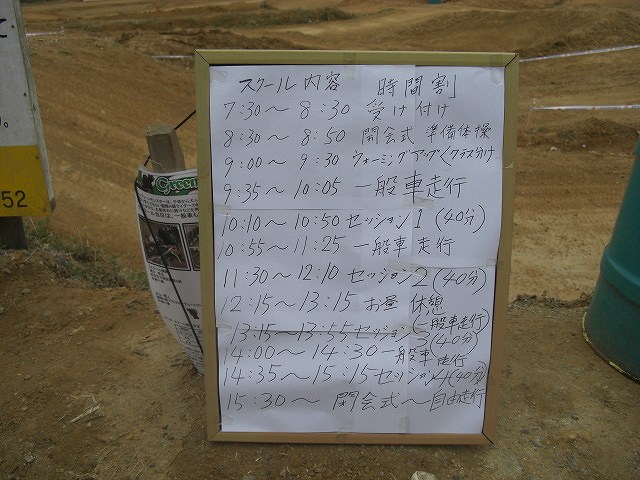 スクール内容 時間割
7:30〜8:30 受け付け
8:30〜8:50 開会式 準備体操
9:00〜9:30 ウォーミングアップ〈クラス分け
9:35〜10:05 一般車走行
10:10〜10:50 セッション1(40分)
10:55〜11:25 一般車走行
11:30〜12:10 セッション2(40分)
12:15〜13:15 お昼休憩
(一般車走行)
13:15〜13:55 セッション3(40分)
14:00〜14:30 一般車走行
14:35〜15:15 セッション4(40分)
15:30〜 閉会式〜自由走行
52
Green